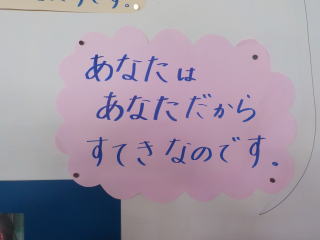 あなたは
あなただから
すてきなのです。